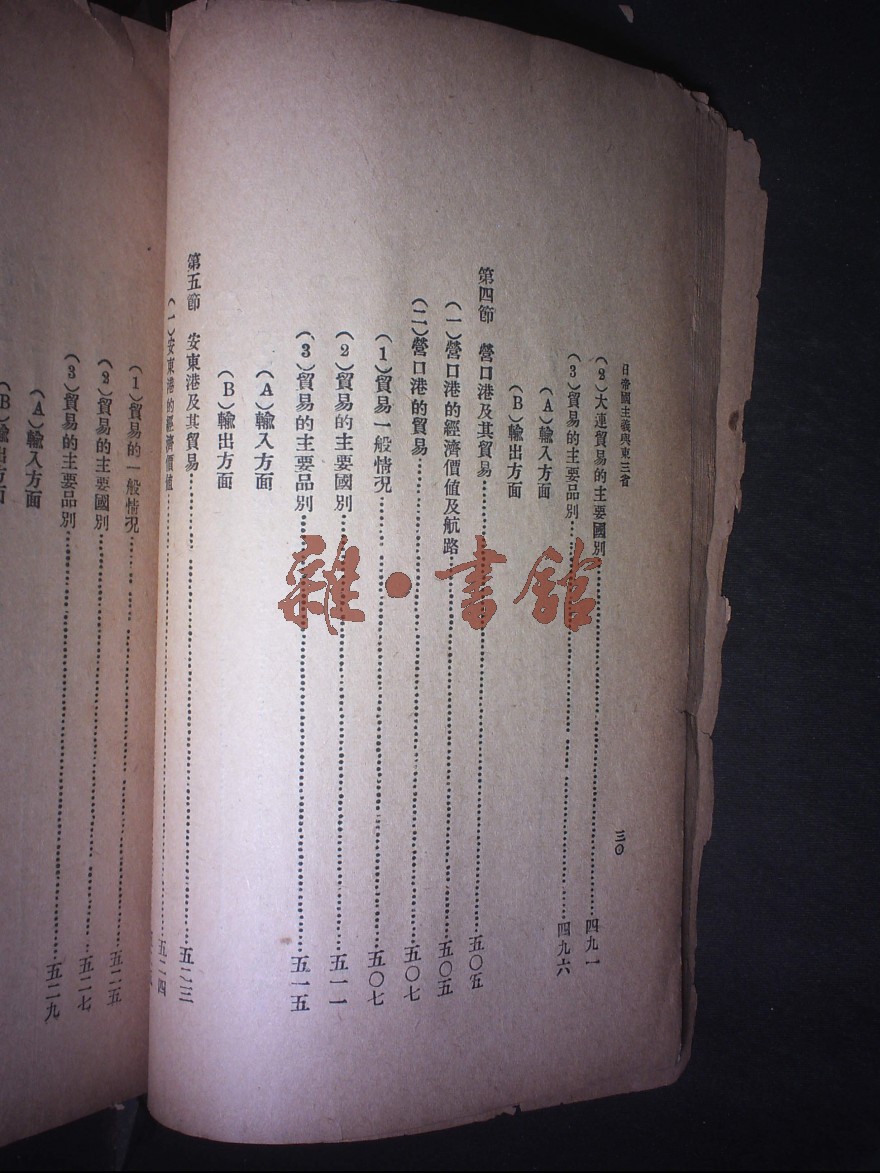 日帝國主義與東三省
三〇
（2）大連貿易的主要國別……四九一
（3）貿易的主要品別……四九六
（A）輸入方面
（B）輸出方面
第四節　營口港及其貿易……五〇五
（一）營口港的經濟價値及航路……五〇五
（二）營口港的貿易……五〇七
（1）貿易一般情况……五〇七
（2）貿易的主要國別……五一一
（3）貿易的主要品別……五一五
（A）輸入方面
（B）輸出方面
第五節　安東港及其貿易……五二三
（一）安東港的經濟價値……五二四
（1）貿易的一般情况……五二五
（2）貿易的主要國別……五二七
（3）貿易的主要品別……五二九
（A）輸入方面
（B）輸出方面
雜·書館